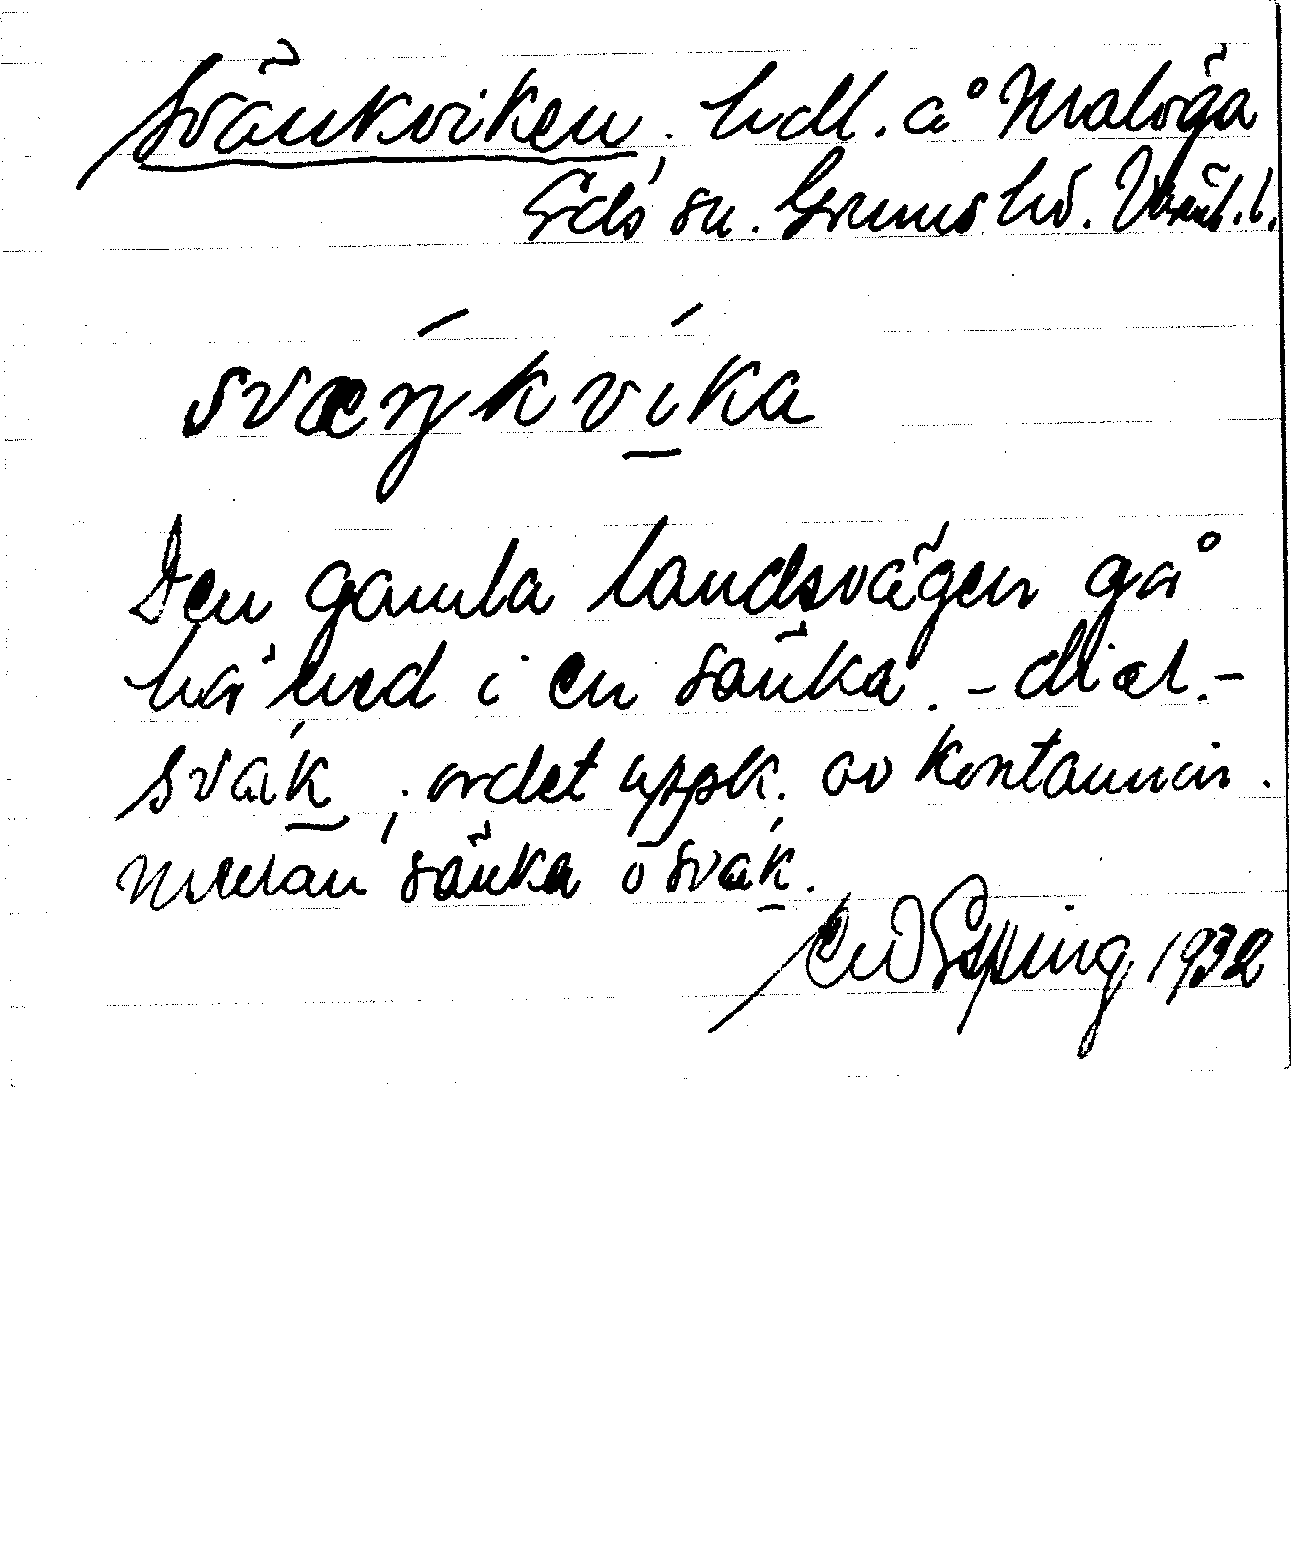 Svänkviken, hdl. å Malöga
Eds sn. Grums hd. Värml. l.
sväŋkvika
Den gamla landsvägen går
här ned i en sänka. - dial. -
svak ; ordet uppk. av kontamin.
mellan sänka o svak.
Epping 1932